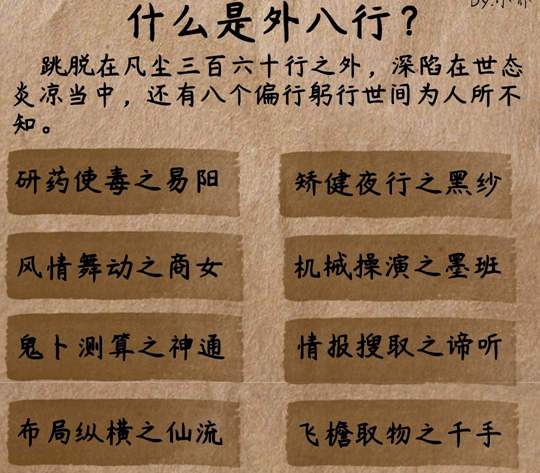 什么是外八行？
跳脱在凡尘三百六十行之外，深陷在世态
炎凉当中，还有八个偏行躬行世间为人所不
知。
研药使毒之易阳
矫健夜行之黑纱
风情舞动之商女
机械操演之墨班
鬼卜测算之神通
情报搜取之谛听
布局纵横之仙流
飞檐取物之千手